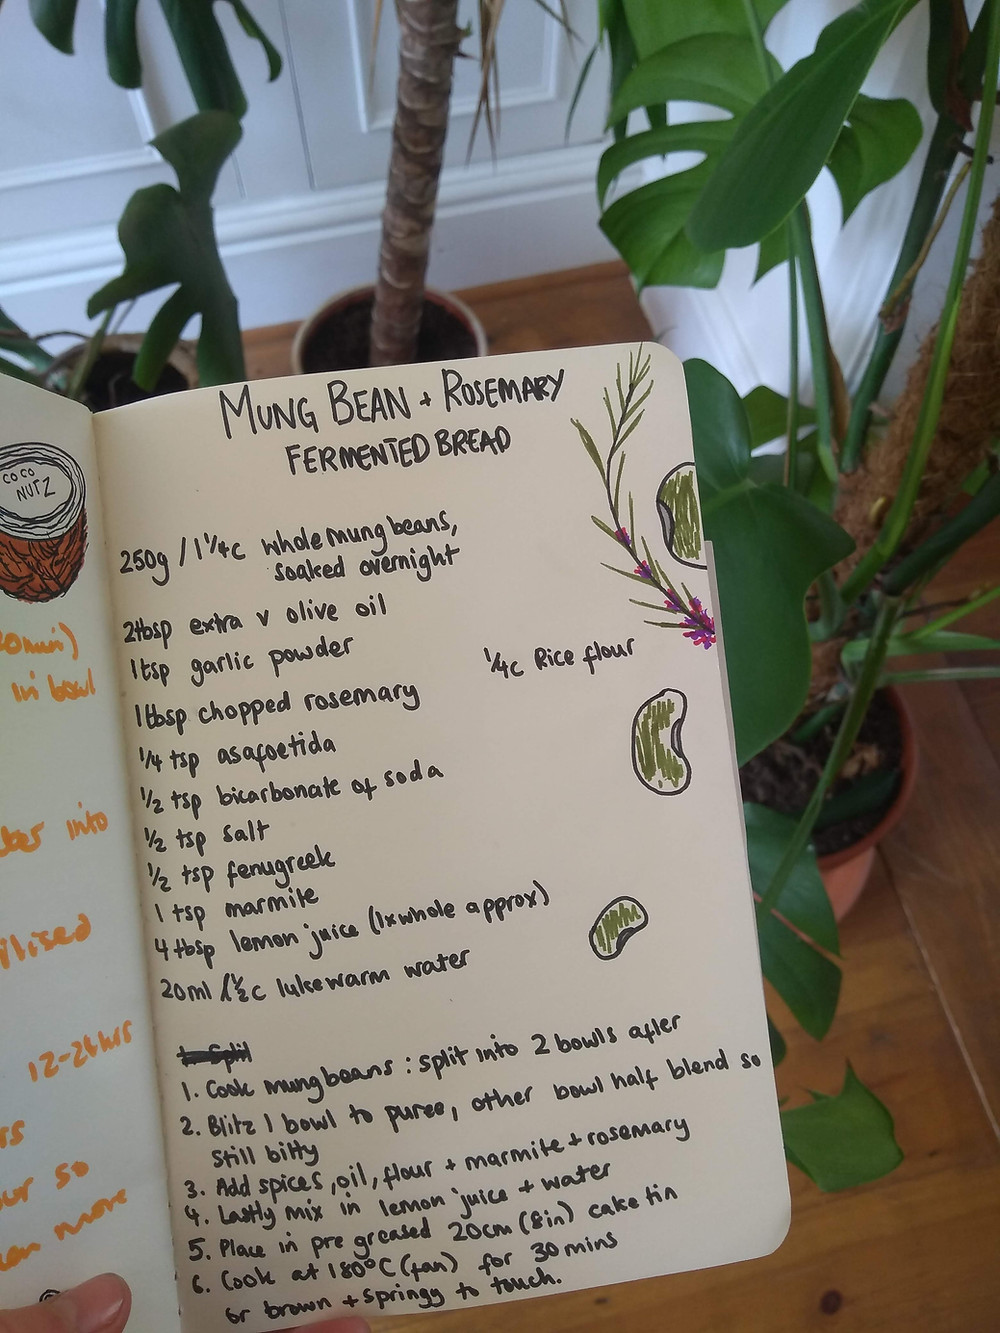 COCO
NUTZ
30min)
in bowl
into
ilised
12-24hrs
rs
our so
more
MUNG BEAN + ROSEMARY
FERMENTED BREAD
250g / 1 1/4c whole mung beans,
soaked overnight
2tbsp extra v olive oil
1tsp garlic powder
1/4c Rice flour
1tbsp chopped rosemary
1/4 tsp asafoetida
1/2 tsp bicarbonate of soda
1/2 tsp salt
1/2 tsp fenugreek
1 tsp marmite
4 tbsp lemon juice (1x whole approx)
20ml / 1/2c lukewarm water
1. Split
1. Cook mung beans : split into 2 bowls after
2. Blitz 1 bowl to puree, other bowl half blend so
still bitty
3. Add spices, oil, flour + marmite + rosemary
4. Lastly mix in lemon juice + water
5. Place in pre greased 20cm (8in) cake tin
6. Cook at 180°C (fan) for 30 mins
or brown + springy to touch.